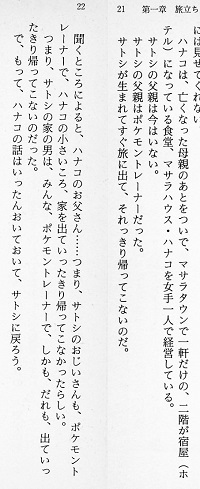 21　第一章　旅立ち
には見せてくれない
ハナコは、亡くなった母親のあとをついで、マサラタウンで一軒だけの、二階が宿屋（ホ
テル）になっている食堂、マサラハウス・ハナコを女手一人で経営している。
サトシの父親は今はいない。
サトシの父親はポケモントレーナーだった。
サトシが生まれてすぐ旅に出て、それっきり帰ってこないのだ。
22
聞くところによると、ハナコのお父さん……つまり、サトシのおじいさんも、ポケモント
レーナーで、ハナコの小さいころ、家を出ていったきり帰ってこなかったらしい。
つまり、サトシの家の男は、みんな、ポケモントレーナーで、しかも、だれも、出ていっ
たきり帰ってこないのだった。
で、もって、ハナコの話はいったんおいておいて、サトシに戻ろう。